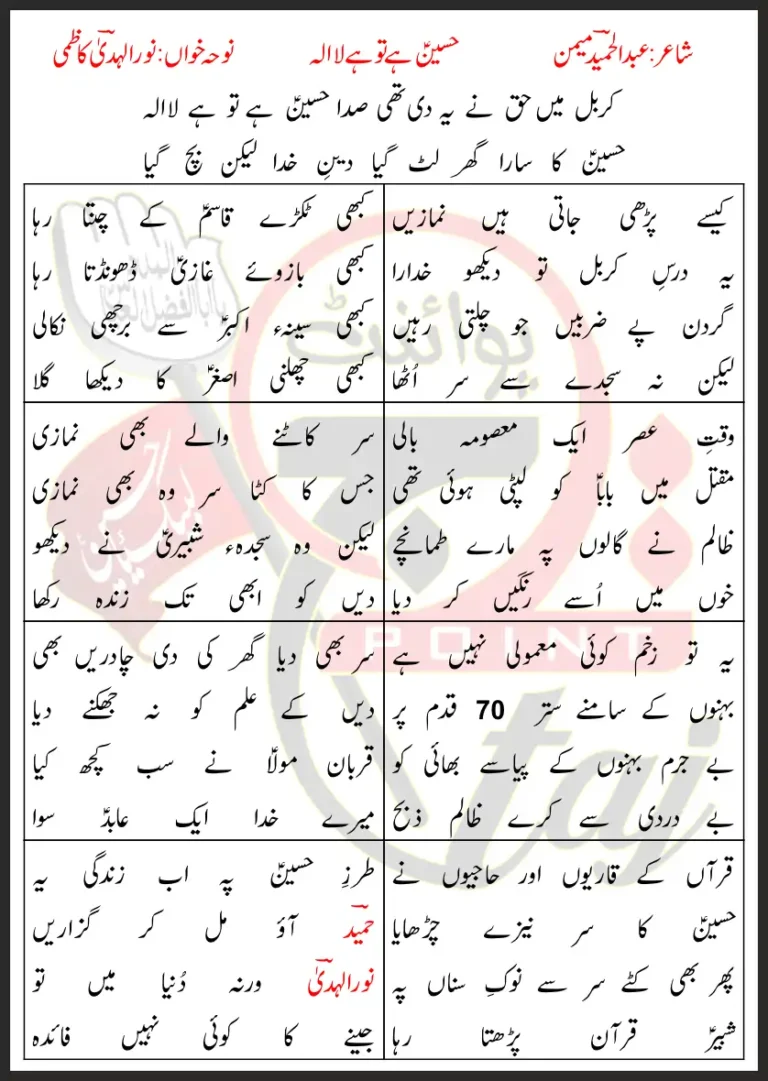 شاعر:عبدالحمیدؔ میمن
حسینؑ ہے تو ہے لا الہ
نوحہ خواں:نورالہدیٰؔ کاظمی
کربل میں حق نے یہ دی تھی صدا حسینؑ ہے تو ہے لا الہ
حسینؑ کا سارا گھر لٹ گیا دینِ خدا لیکن بچ گیا
کیسے پڑھی جاتی ہیں نمازیں
یہ درسِ کربل تو دیکھو خدارا
گردن پے ضربیں جو چلتی رہیں
لیکن نہ سجدے سے سر اُٹھا
کبھی ٹکڑے قاسمؑ کے چنتا رہا
کبھی بازوئے غازیؑ ڈھونڈتا رہا
کبھی سینہء اکبرؑ سے برچھی نکالی
کبھی چھلنی اصغرؑ کا دیکھا گلا
وقتِ عصر ایک معصومہ بالی
مقتل میں باباؑ کو لپٹی ہوئی تھی
ظالم نے گالوں پہ مارے طمانچے
خوں میں اُسے رنگیں کر دیا
سر کاٹنے والے بھی نمازی
جس کا کٹا سر وہ بھی نمازی
لیکن وہ سجدہء شبیریؑ نے دیکھو
دیں کو ابھی تک زندہ رکھا
یہ تو زخم کوئی معمولی نہیں ہے
بہنوں کے سامنے ستر 70 قدم پر
بے جرم بہنوں کے پیاسے بھائی کو
بے دردی سے کرے ظالم ذبح
سر بھی دیا گھر کی دی چادریں بھی
دیں کے علم کو نہ جھکنے دیا
قربان مولاؑ نے سب کچھ کیا
میرے خدا ایک عابدؑ سوا
قرآں کے قاریوں اور حاجیوں نے
حسینؑ کا سر نیزے چڑھایا
پھر بھی کٹے سر سے نوکِ سناں پہ
شبیرؑ قرآن پڑھتا رہا
طرزِ حسینؑ پہ اب زندگی یہ
حمیدؔ آؤ مل کر گزاریں
نورالہدیٰؔ ورنہ دُنیا میں تو
جینے کا کوئی نہیں فائدہ
پوائنٹ
POINT
taj